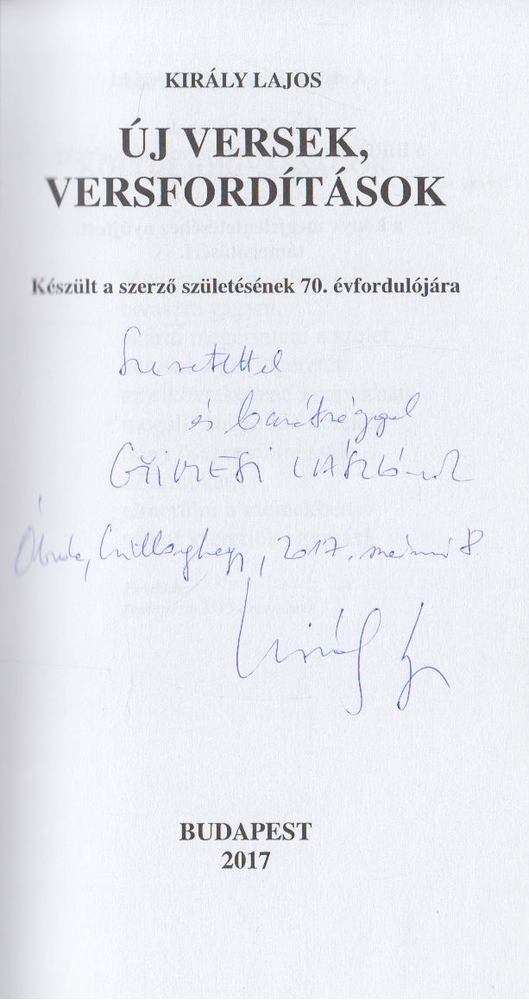 KIRÁLY LAJOS
ÚJ VERSEK,
VERSFORDÍTÁSOK
Készült a szerző születésének 70. évfordulójára
Szeretettel
és barátsággal
GYIMESI LÁSZLÓnak
Óbuda, Csillaghegy, 2017. március 8.
Király L
BUDAPEST
2017